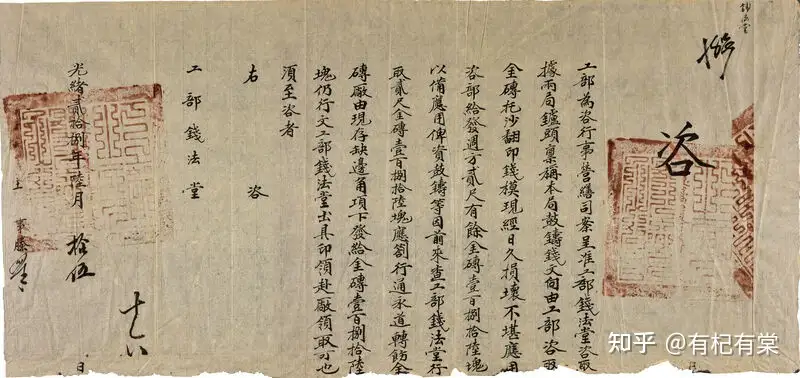 錢法堂
咨
工部為咨行事營繕司案呈准工部錢法堂咨取
據兩局鑪頭稟稱本局鼓鑄錢文向由工部咨取
金磚托沙翻印錢模現經日久損壞不堪應用
咨部給發週方貳尺有餘金磚壹百捌拾陸塊
以備應用俾資鼓鑄等因前來查工部錢法堂行
取貳尺金磚壹百捌拾陸塊應劄行通永道轉飭金
磚廠由現存缺邊角項下發給金磚壹百捌拾陸
塊仍行文工部錢法堂出具印領赴廠領取可也
須至咨者
右咨
工部錢法堂
光緒貳拾捌年陸月拾伍日
主事
十八
知乎 @有杞有棠